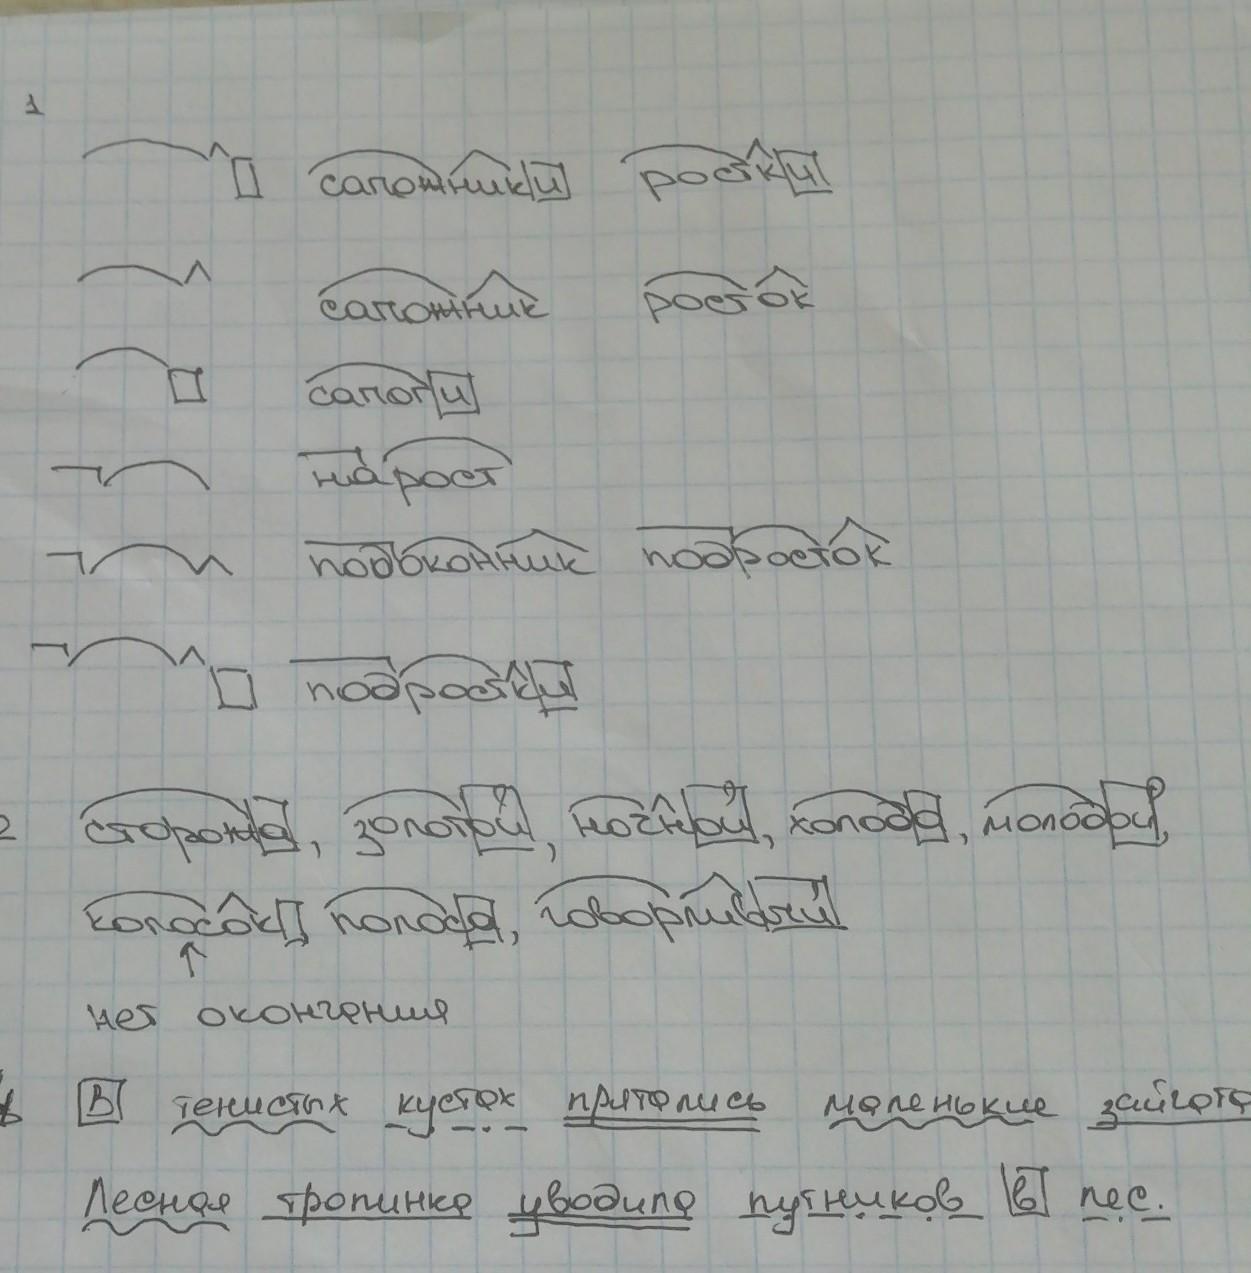 1
сапожники ростки
сапожник росток
сапоги
нарост
подоконник подросток
подростки
2 сторожа, золотой, ночной, холода, молодой,
колосок, полоса, говорливый
нет окончения
В тенистых кустах притаились маленькие зайчата
Лесная тропинка уводила путников в лес.